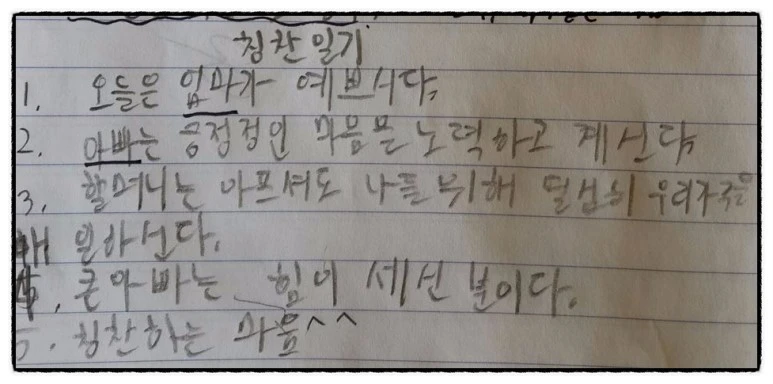 칭찬일기
1. 오늘은 엄마가 예쁘시다.
2. 아빠는 긍정정인 마음을 노력하고 계신다
3. 할머니는 아프셔도 나를 위해 열심히
일하신다.
4. 큰아빠는 힘이 세신 분이다.
5. 칭찬하는 마음^^